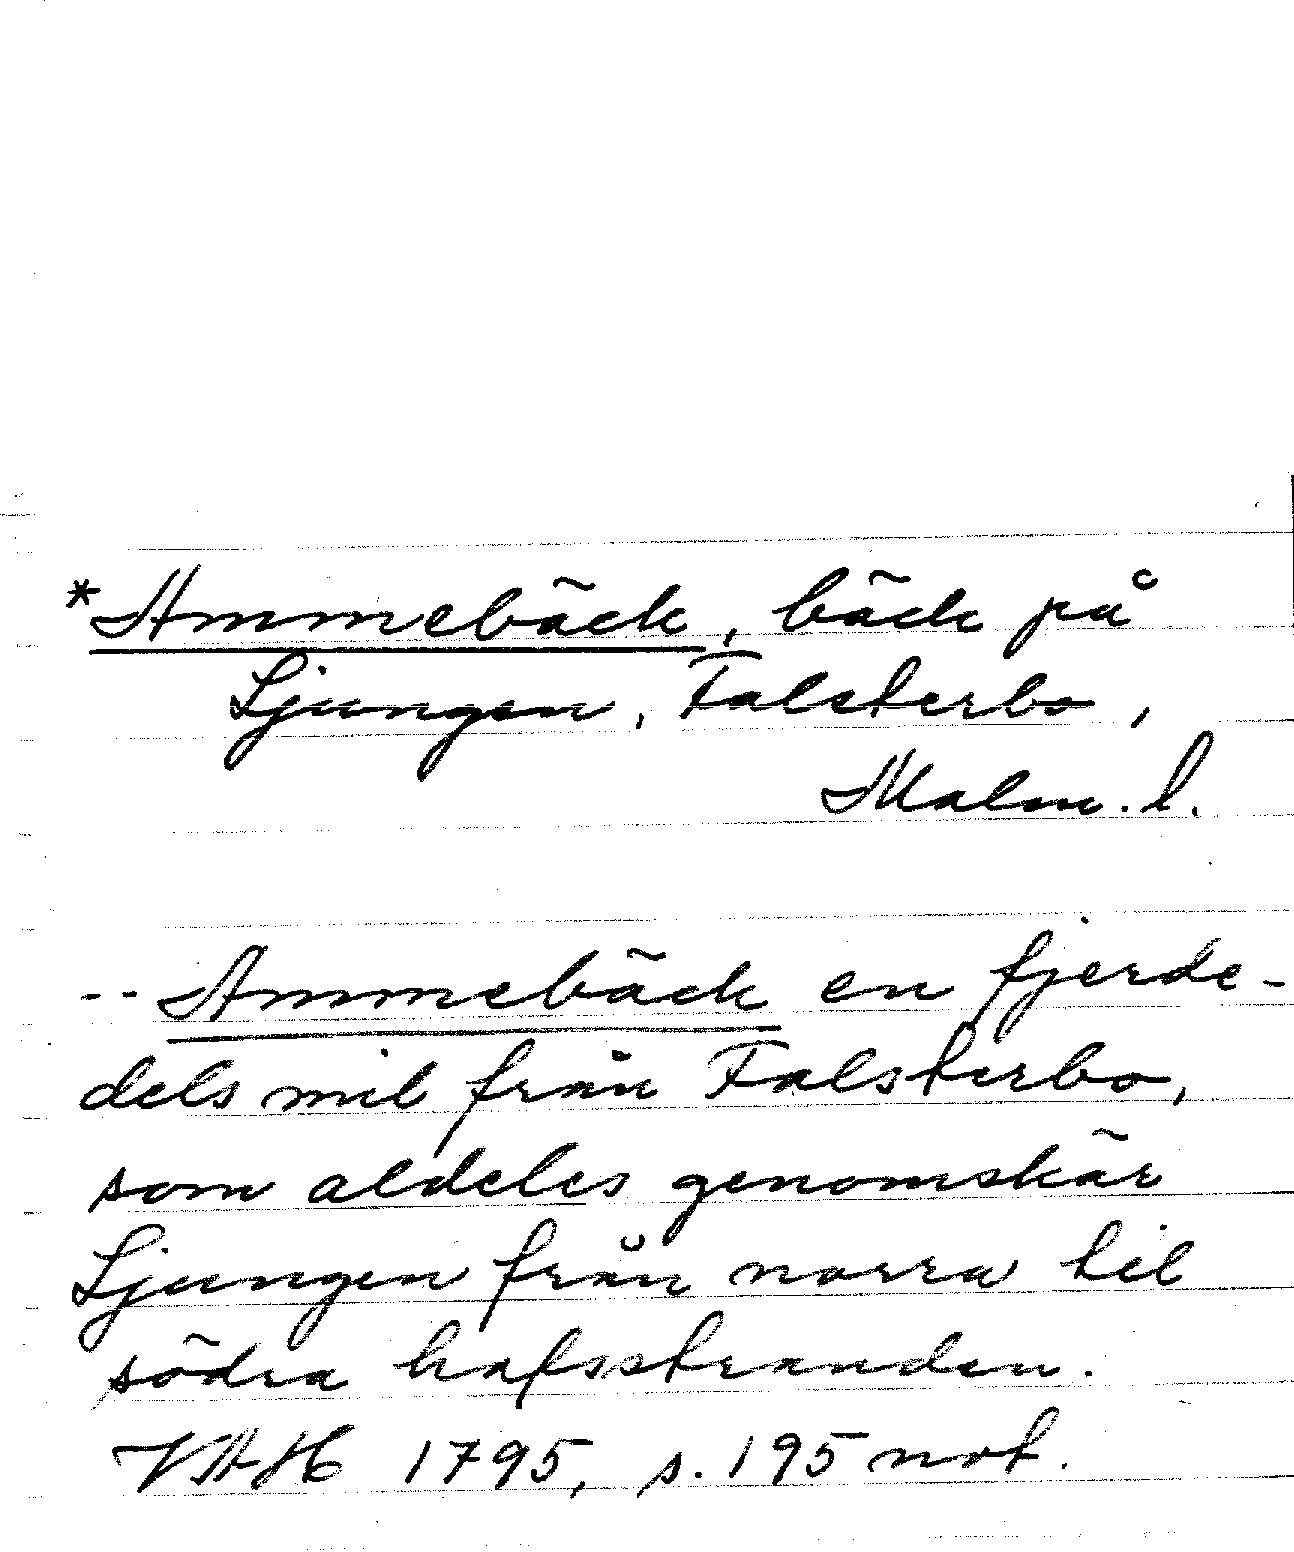 *Ammebäck, bäck på
Ljungen, Falsterbo,
Malm. l.
-- Ammebäck en fjerde-
dels mil från Falsterbo,
som aldeles genomskär
Ljungen från norra til
södra hafsstranden.
VAH 1795, s. 195 not.